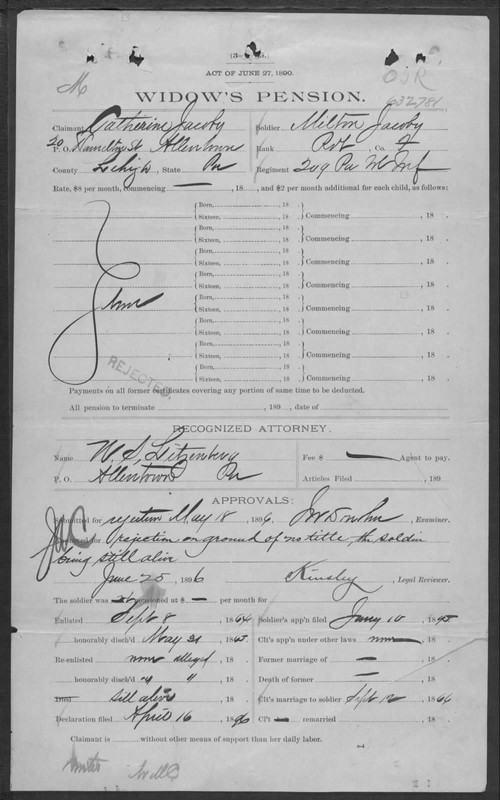 ACT OF JUNE 27, 1890.
M
632,781
WIDOW'S PENSION.
Claimant Catherine Jacoby Soldier Milton Jacoby
P. O. Hamilton St Allentown Rank Pvt, Co. F
County Lehigh, State Pa Regiment 209 Pa Inf
Rate, $8 per month, commencing —, 18 , and $2 per month additional for each child, as follows:
Born, 18
Sixteen, 18 Commencing , 18 .
Born, 18
Sixteen, 18 Commencing , 18 .
Born, 18
Sixteen, 18 Commencing , 18 .
Born, 18
Sixteen, 18 Commencing , 18 .
Born, 18
None
Sixteen, 18 Commencing , 18 .
Born, 18
Sixteen, 18 Commencing , 18 .
Born, 18
Sixteen, 18 Commencing , 18 .
Born, 18
Sixteen, 18 Commencing , 18 .
REJECTED
Payments on all former certificates covering any portion of same time to be deducted.
All pension to terminate , 189 , date of
RECOGNIZED ATTORNEY.
Name W. S. Litzenberg Fee $ — Agent to pay.
P. O. Allentown Pa Articles Filed , 189 .
APPROVALS:
Submitted for rejection May 18, 1896, Examiner.
for rejection on ground of no title, the soldier
being still alive
June 25, 1896 Kinsley, Legal Reviewer.
The soldier was pensioned at $ — per month for
Enlisted Sept 8, 1864 Soldier's app'n filed 10, 18
honorably disch'd May 31, 1865 Clt's app'n under other laws none, 18
Re-enlisted none alleged, 18 Former marriage of —
honorably disch'd " ", 18 Death of former —, 18
Died still alive, 18 Clt's marriage to soldier Sept 12, 1866
Declaration filed April 16, 1896 Cl't — remarried , 18
Claimant is — without other means of support than her daily labor.